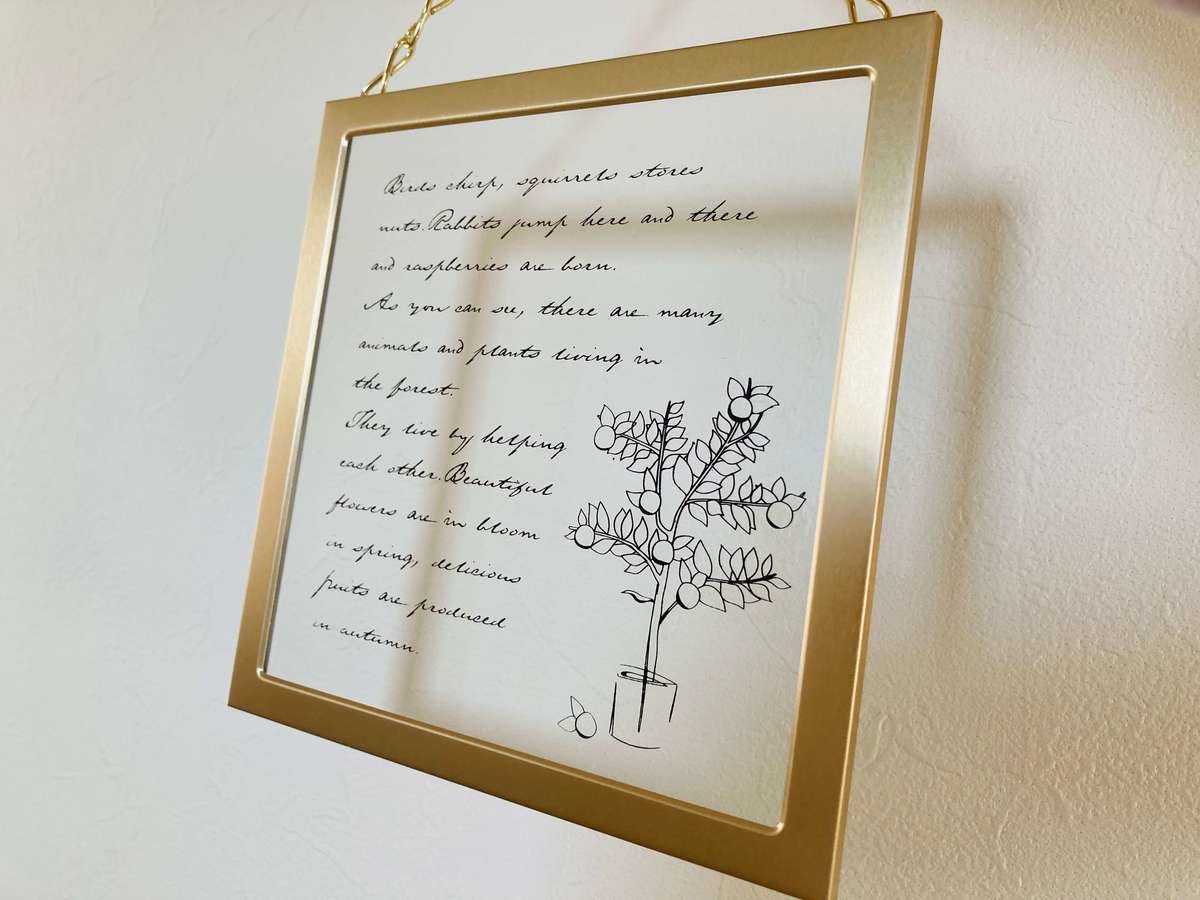 Birds chirp, squirrels stores
nuts. Rabbits jump here and there
and raspberries are born.
As you can see, there are many
animals and plants living in
the forest.
They live by helping
each other. Beautiful
flowers are in bloom
in spring, delicious
fruits are produced
in autumn.